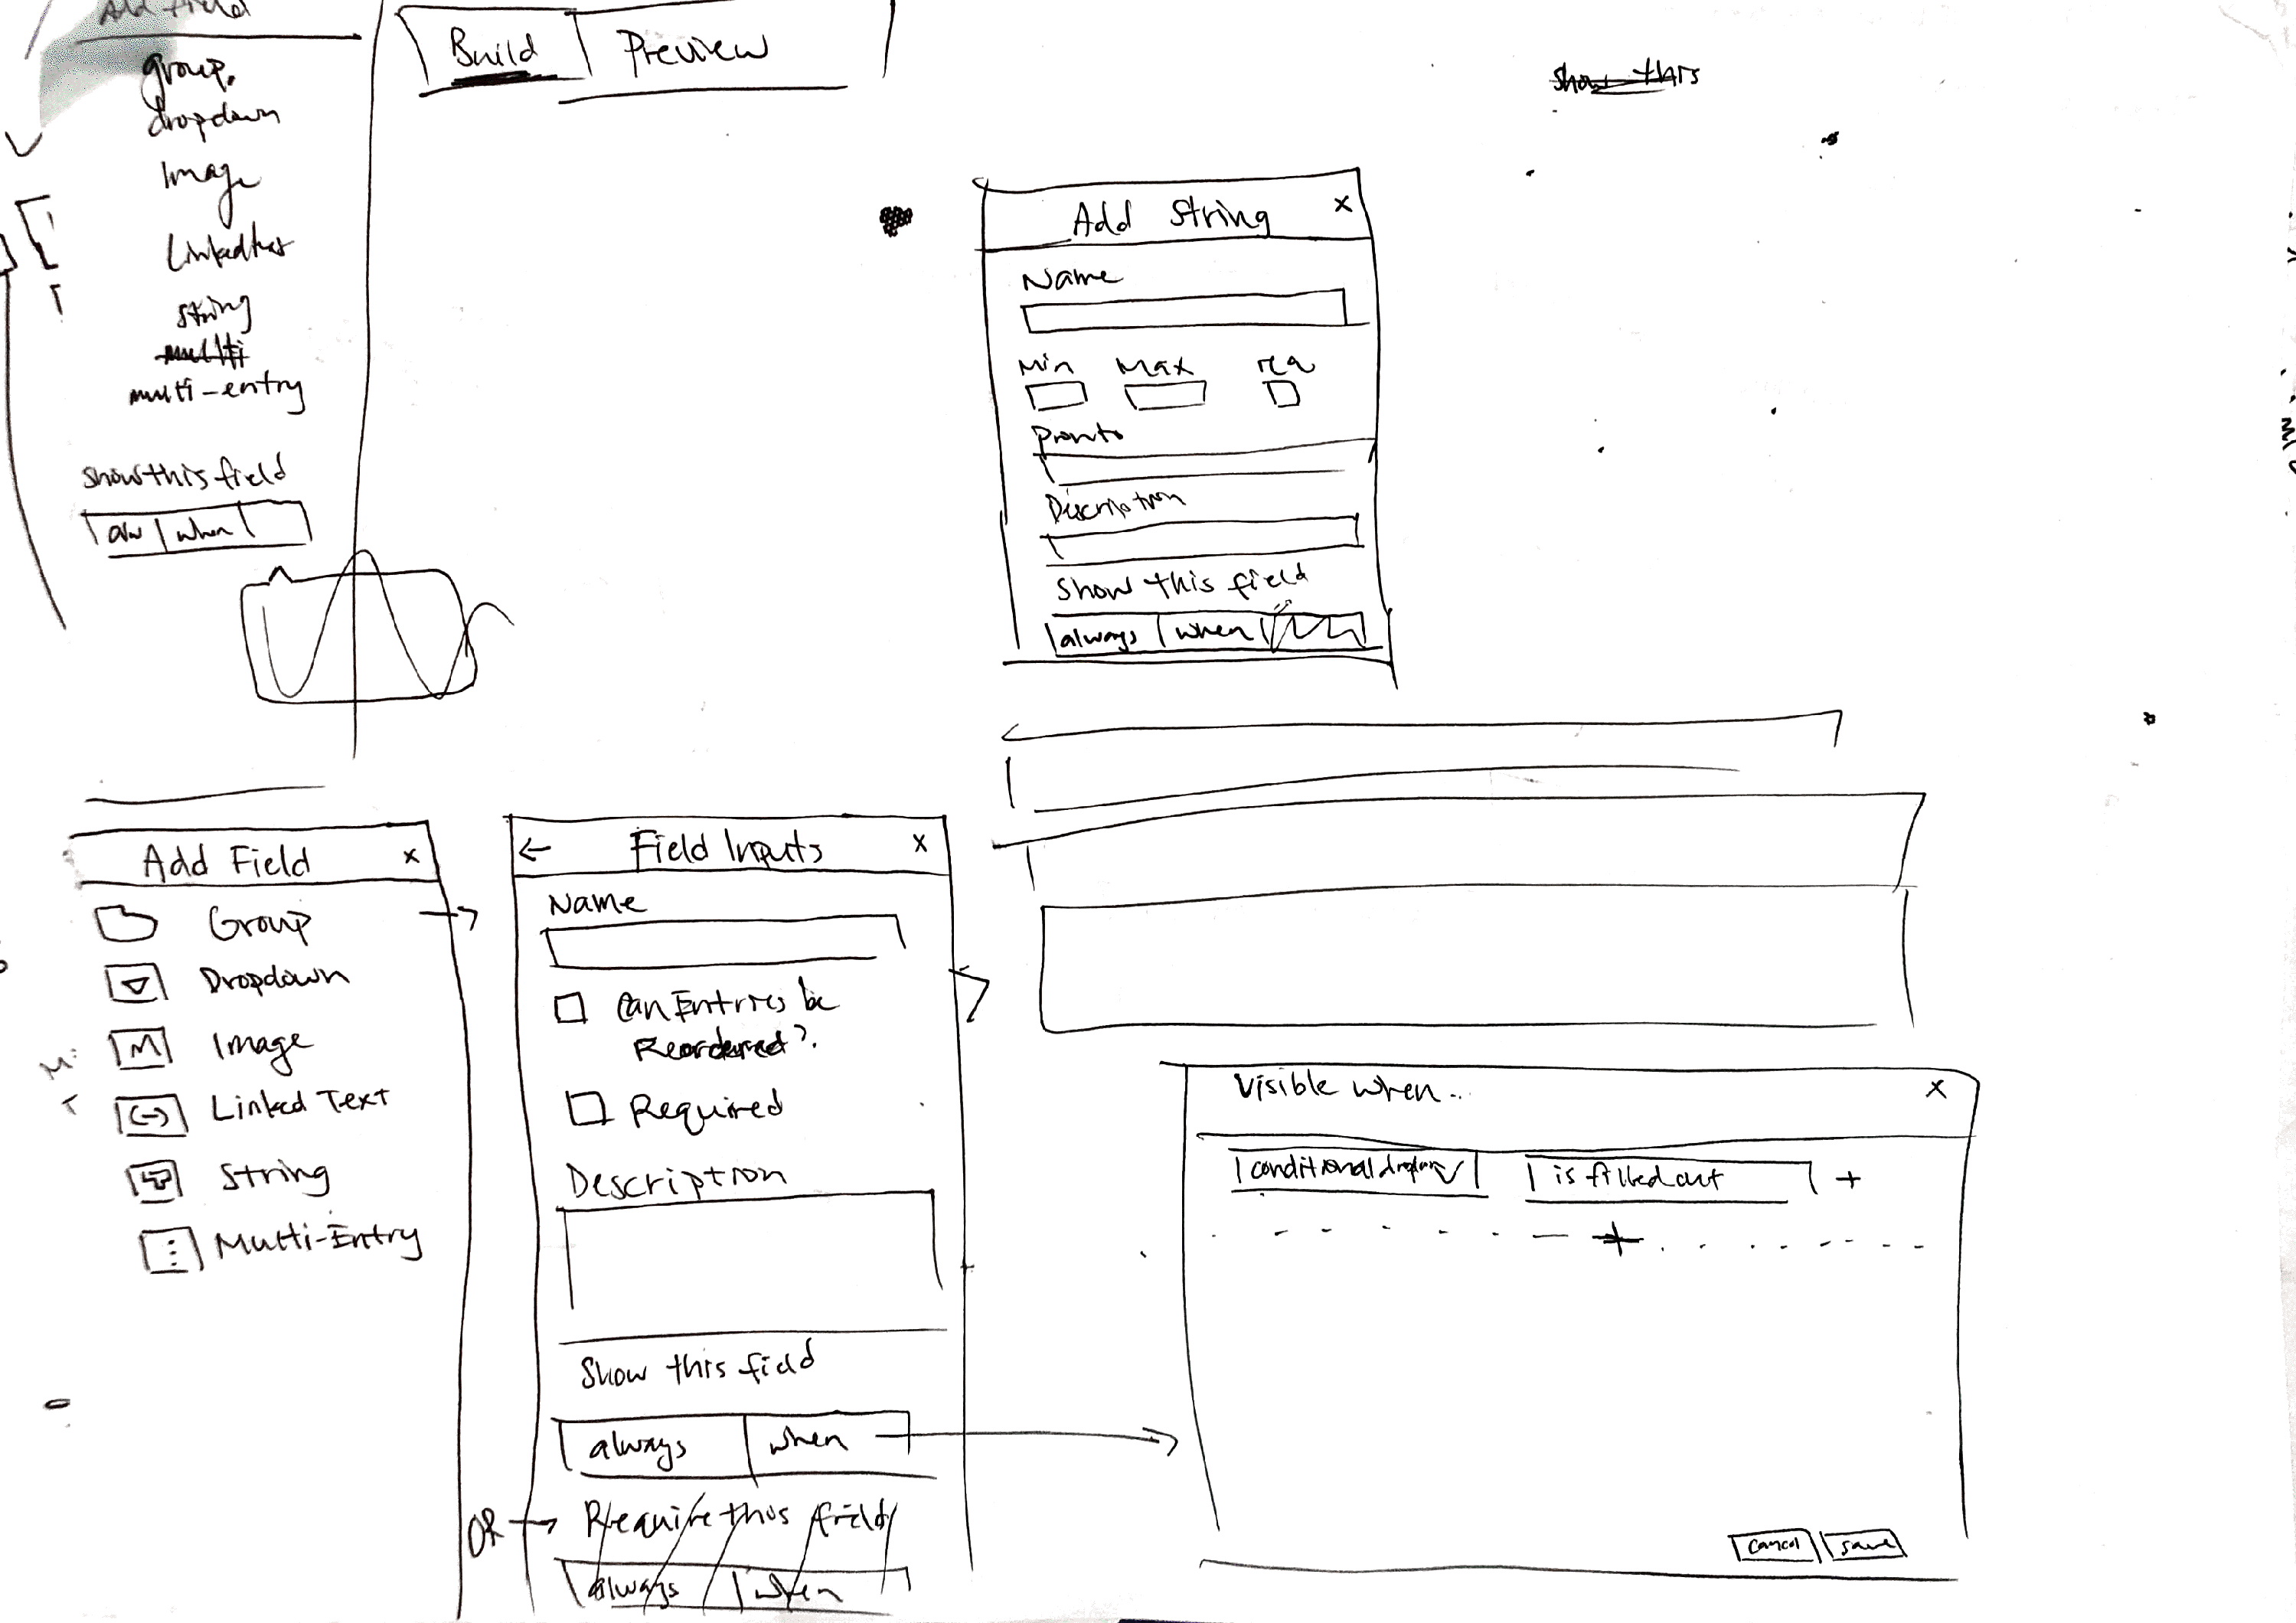 Add Field
group.
dropdown
Image
Linkedtext
string
multi
multi-entry
show this field
alw when
Build Preview
show this
Add String x
Name
Min Max req
Description
Show this field
always when
Add Field x
Group
Dropdown
Image
Linked Text
String
Multi-Entry
← Field Inputs x
Name
Can Entries be
Reordered?
Required
Description
Show this field
always when
OR → Require this field
always when
Visible when... x
is filled out +
+
cancel save